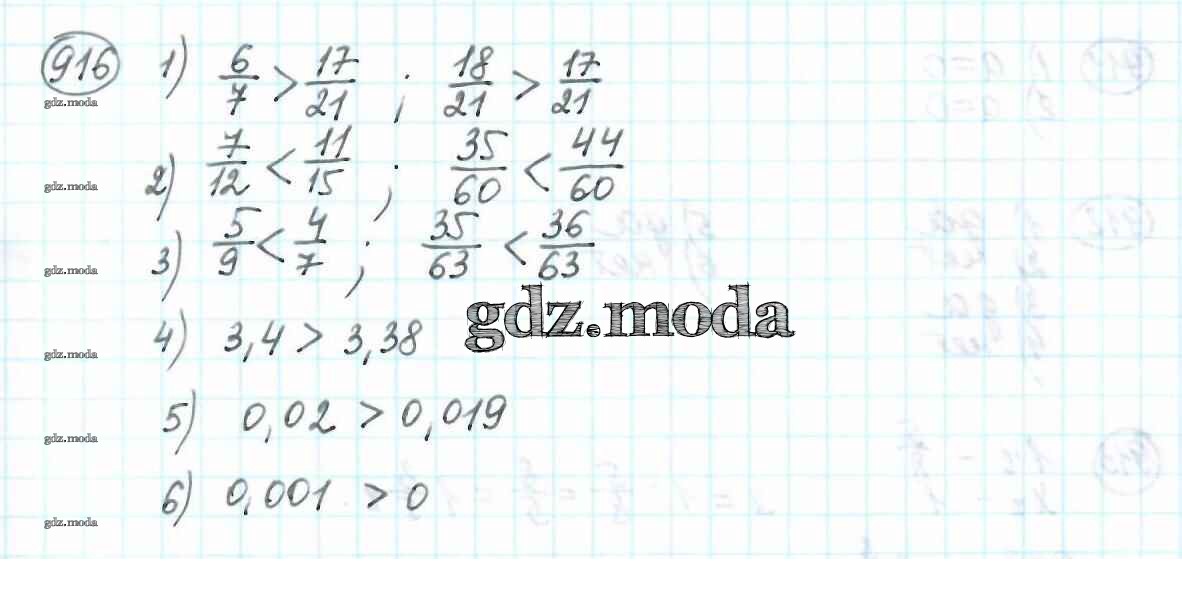 916 1) 6/7 > 17/21 ; 18/21 > 17/21
gdz.moda
2) 7/12 < 11/15 ; 35/60 < 44/60
gdz.moda
3) 5/9 < 4/7 ; 35/63 < 36/63
gdz.moda
gdz.moda
4) 3,4 > 3,38
gdz.moda
5) 0,02 > 0,019
gdz.moda
6) 0,001 > 0
gdz.moda